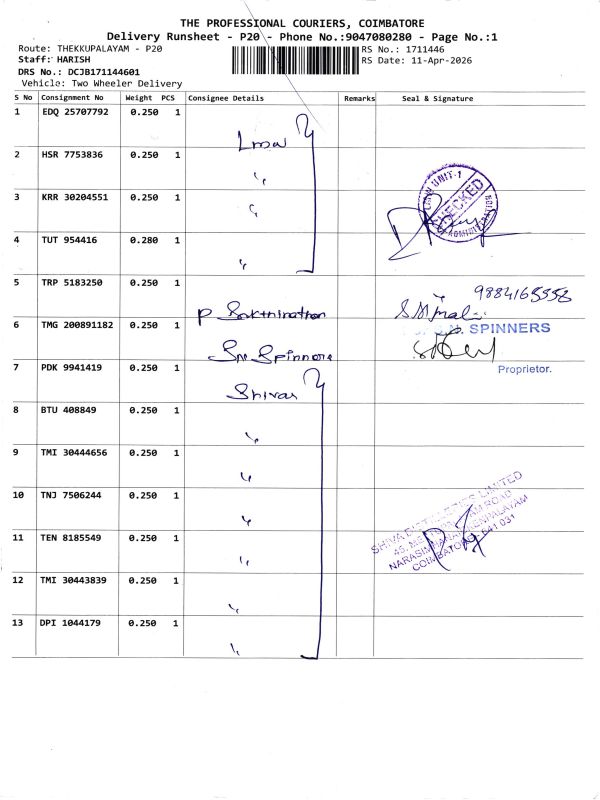 THE PROFESSIONAL COURIERS, COIMBATORE
Delivery Runsheet - P20 - Phone No.:9047080280 - Page No.:1
Route: THEKKUPALAYAM - P20
RS No.: 1711446
Staff: HARISH
RS Date: 11-Apr-2026
DRS No.: DCJB171144601
Vehicle: Two Wheeler Delivery
S No Consignment No Weight PCS Consignee Details Remarks Seal & Signature
1 EDQ 25707792 0.250 1
2 HSR 7753836 0.250 1
3 KRR 30204551 0.250 1
4 TUT 954416 0.280 1
5 TRP 5183250 0.250 1 9884165558
6 TMG 200891182 0.250 1 SPINNERS
Sri Spinners
Proprietor.
7 PDK 9941419 0.250 1 Shivas
8 BTU 408849 0.250 1
9 TMI 30444656 0.250 1
10 TNJ 7506244 0.250 1
11 TEN 8185549 0.250 1
12 TMI 30443839 0.250 1
13 DPI 1044179 0.250 1